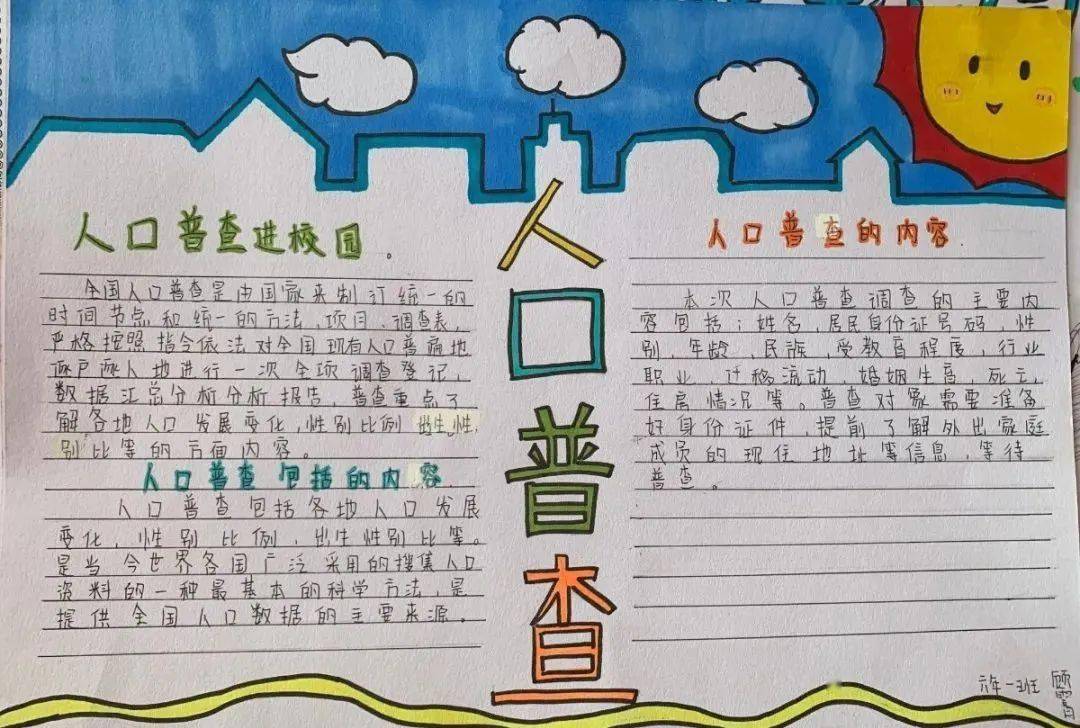 人口普查进校园。
全国人口普查是由国家来制订统一的
时间节点和统一的方法、项目、调查表,
严格按照指令依法对全国现有人口普遍地
逐户逐人地进行一次全项调查登记,
数据汇总分析分析报告,普查重点了
解各地人口发展变化,性别比例出生性
别比等的方面内容。
人口普查包括的内容
人口普查包括各地人口发展
变化,性别比例,出生性别比等。
是当今世界各国广泛采用的搜集人口
资料的一种最基本的科学方法,是
提供全国人口数据的主要来源。
人
口
普
查
人口普查的内容
本次人口普查调查的主要内
容包括:姓名,居民身份证号码,性
别,年龄,民族,受教育程度,行业
职业,迁移流动,婚姻生育,死亡,
住房情况等。普查对象需要准备
好身份证件,提前了解外出家庭
成员的现住地址等信息,等待
普查。
六年一班